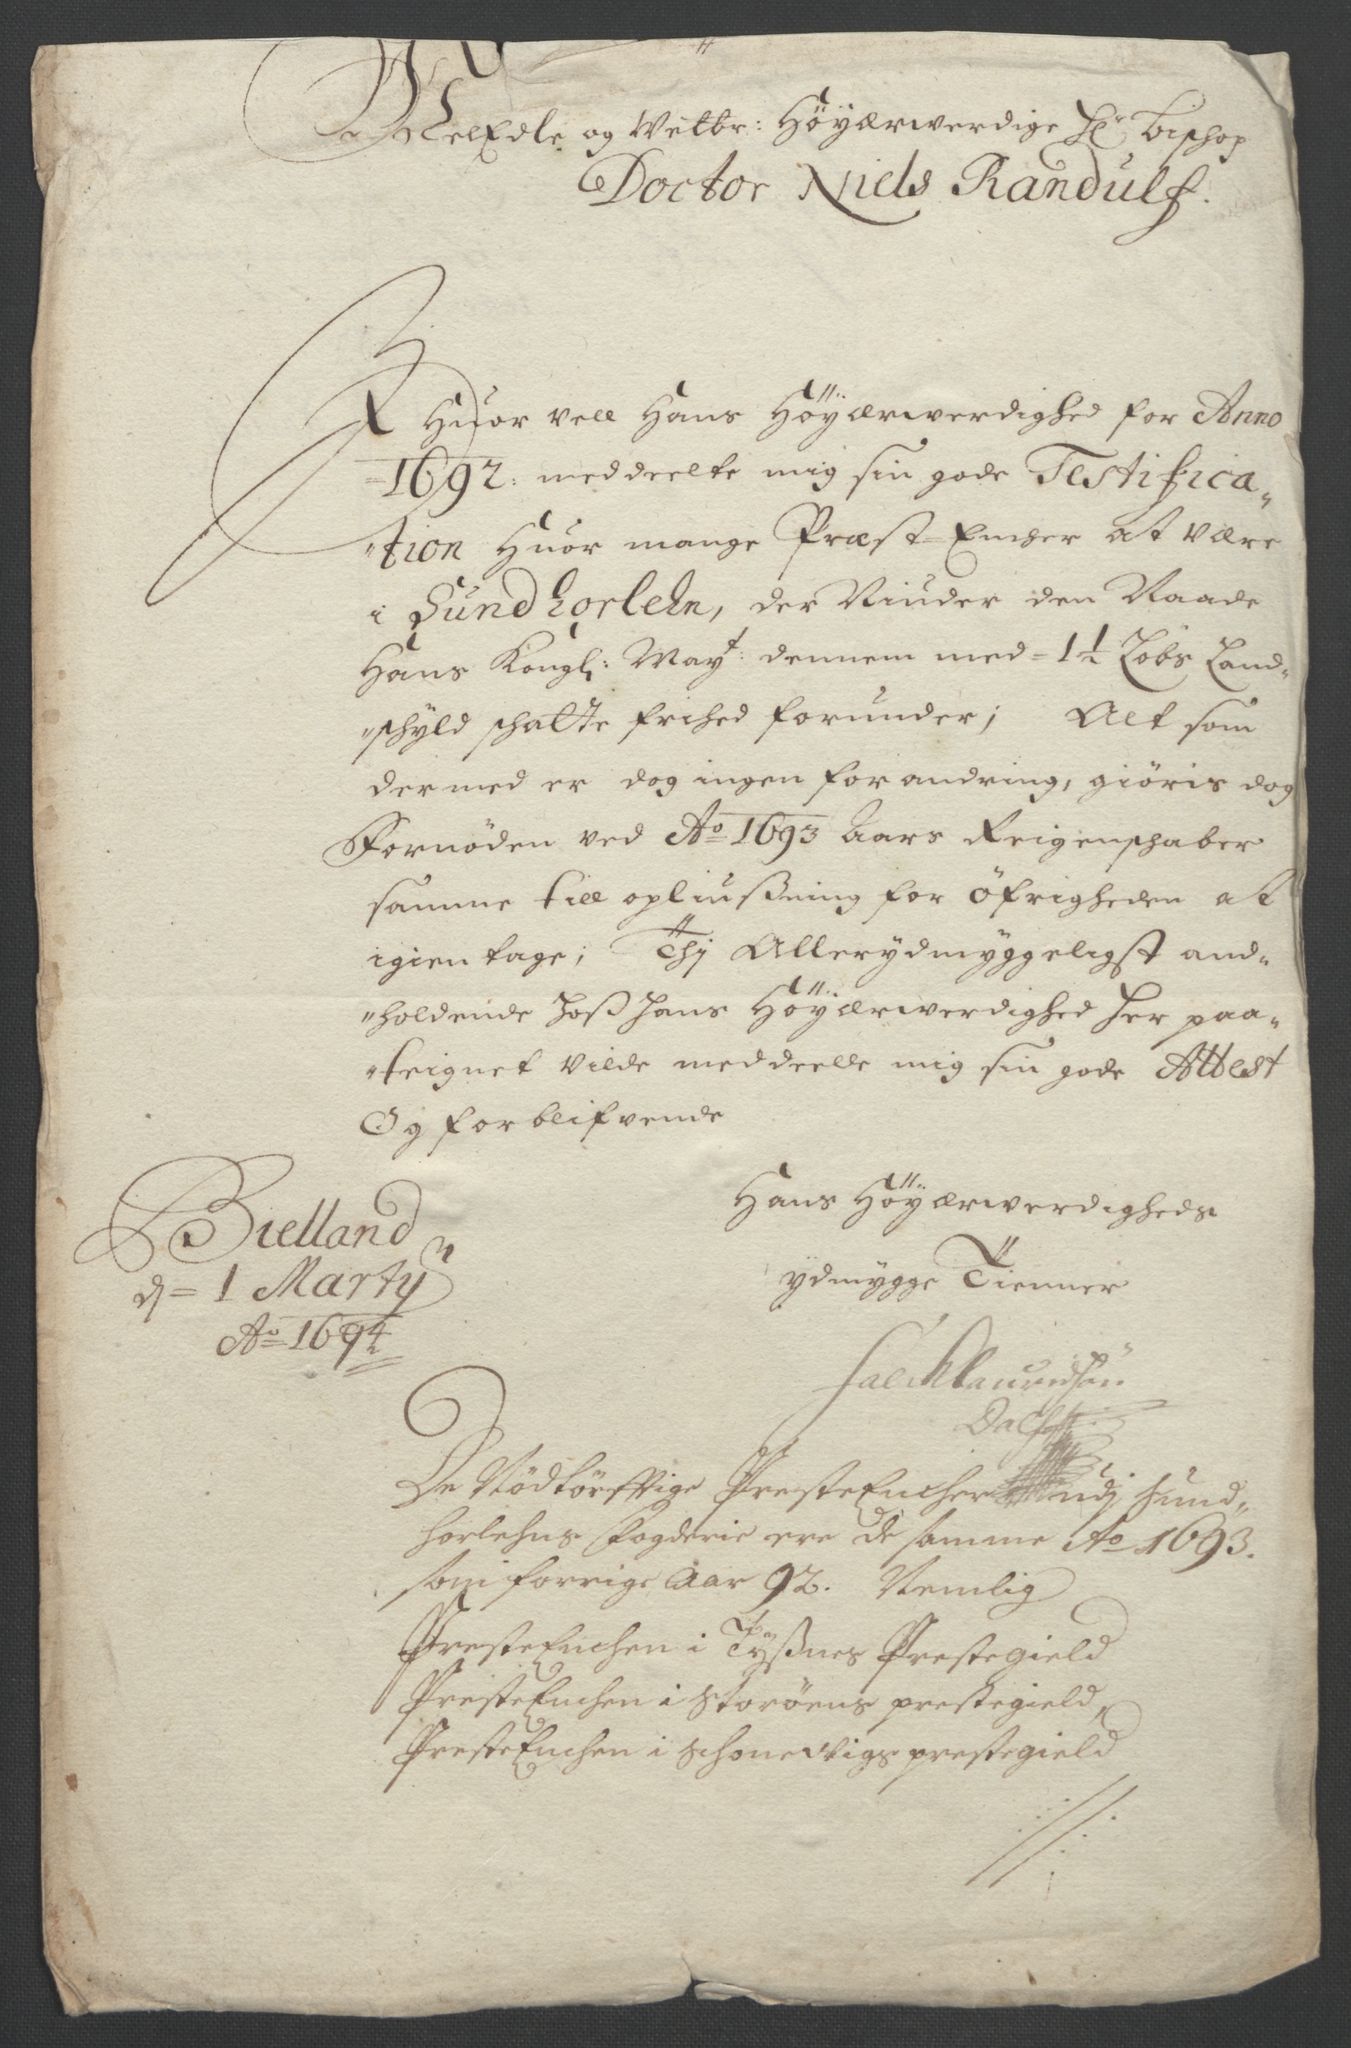 WelEdle og Velbr: Höÿærwerdige Hr Bischop
Doctor Niels Randulf.
Huor vell Hans Höÿærwerdighed for Anno
1692: meddeelte mig sin gode Testifica-
tion Huor mange Præst-Encher at være
i Sundhorlehn, der Niuder den Naade
Hans Kongl: Mayt: dennem med = 1½ Løbs Land-
schyld schatte frihed forunder; Alt som
dermed er dog ingen forandring, giöris dog
Fornöden ved Ao 1693 Aars Reigenschaber
samme till opliusning for Öfrigheden at
igientage; Thj Allerydmyggeligst and-
holdende hoss Hans Höÿærwerdighed her paa-
teignet vilde meddeelle mig sin gode Attest
Og forblifvende
Hans Höÿærwerdigheds
ydmygge Tienner
Bielland
d = 1 Marty
Ao 1694
De Nödtörfftige PresteEncher udj Sund-
horlehns Fogderie ere de samme Ao 1693.
som forrige Aar 92. Nemlig
PresteEnchen i Tyßnes Prestegield
PresteEnchen i Storöens prestegield,
PresteEnchen i Schonevigs prestegield